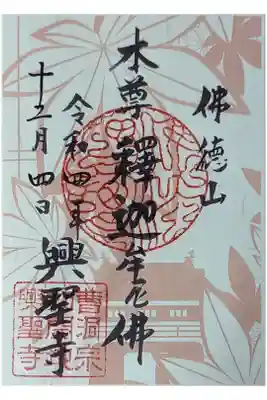 佛德山
本尊 釋迦牟尼佛
令和四年
十二月四日
興聖寺
曹洞宗
興聖寺